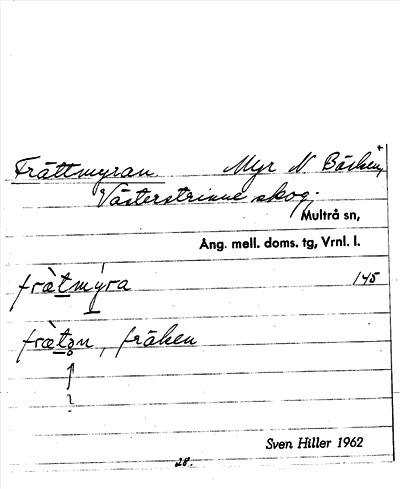 Frättmyran. Myr N. Bäcken,
Västerstrinne skog.
Multrå sn,
Ång. mell. doms. tg, Vrnl. l.
frä̀tmýra 145
frætən, fräken
Sven Hiller 1962
28.